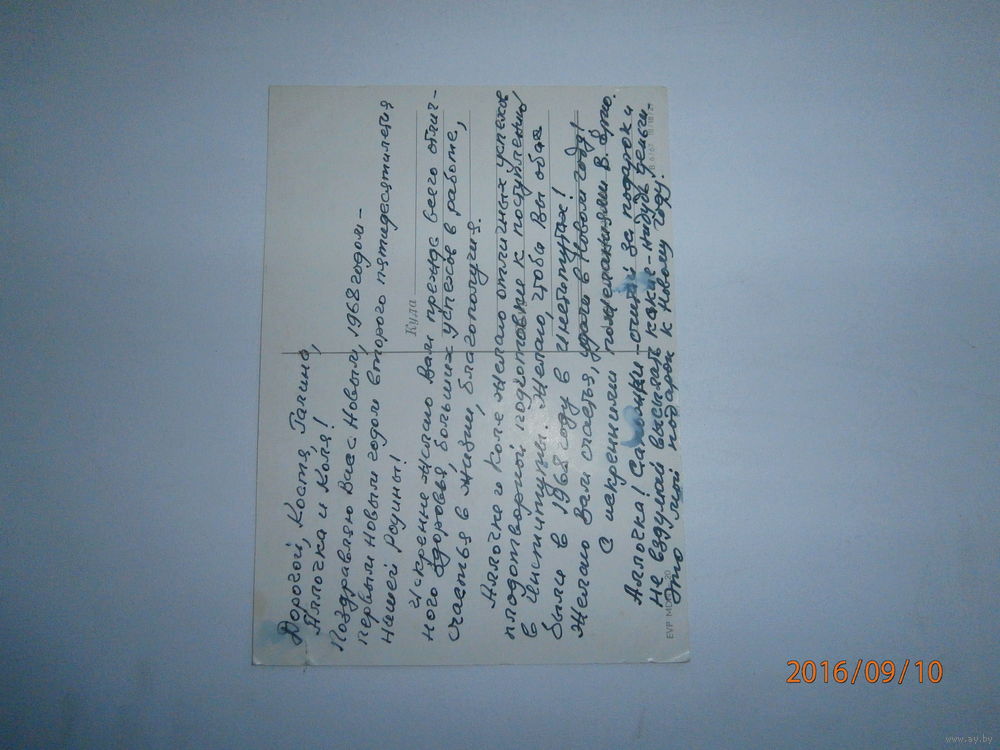 Дорогой, Костя, Галина,
Лялочка и Коля!
Поздравляю Вас с Новым, 1968 годом –
первым Новым годом второго пятидесятилетия
Нашей Родины!
Куда
Искренне желаю Вам прежде всего отлич-
ного здоровья, больших успехов в работе,
счастья в жизни, благополучия.
Лялочке и Коле желаю отличных успехов
плодотворной подготовке к поступлению
в Институты. Желаю, чтобы Вы оба
были в 1968 году в институтах!
Желаю Вам счастья, удачи в Новом году!
С искренними пожеланиями В.
Лялочка! считай за подарок и
не вздумай высылать какие-нибудь деньги.
Это мой подарок к Новому году.
EVP
2016/09/10
www.ay.by